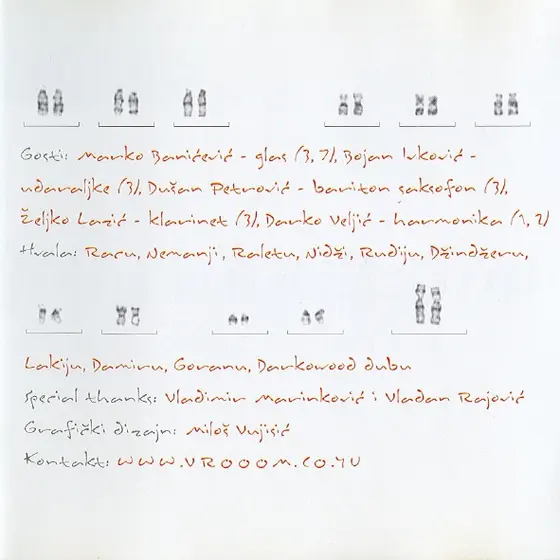 Gosti: Marko Banićević - glas (3, 7), Bojan Ivković -
udaraljke (3), Dušan Petrović - bariton saksofon (3),
Željko Lazić - klarinet (3), Darko Veljić - harmonika (1, 2)
Hvala: Racu, Nemanji, Raletu, Nidži, Rudiju, Džindžeru,
Lakiju, Damiru, Goranu, Darkowood dubu
Special thanks: Vladimir Marinković i Vladan Rajović
Grafički dizajn: Miloš Vujisić
Kontakt: WWW.VROOOM.CO.YU